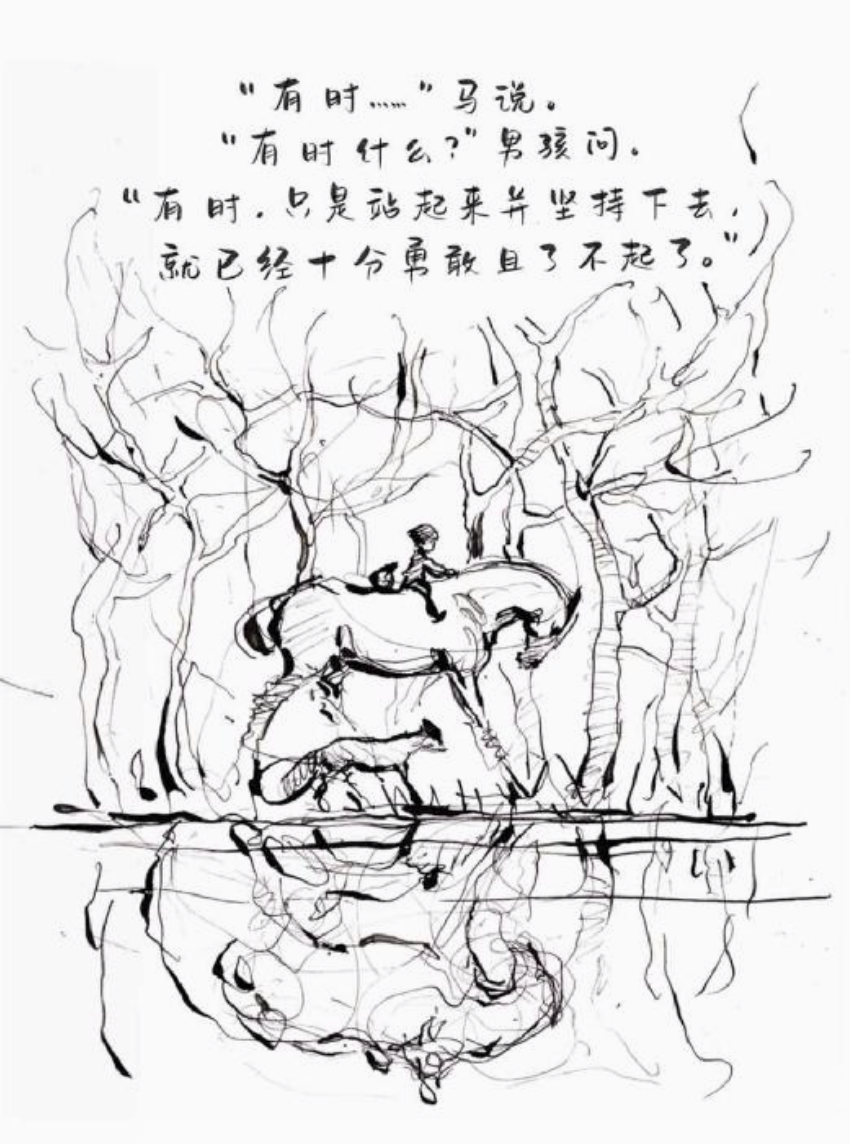 “有时……”马说。
“有时什么？”男孩问。
“有时，只是站起来并坚持下去，
就已经十分勇敢且了不起了。”